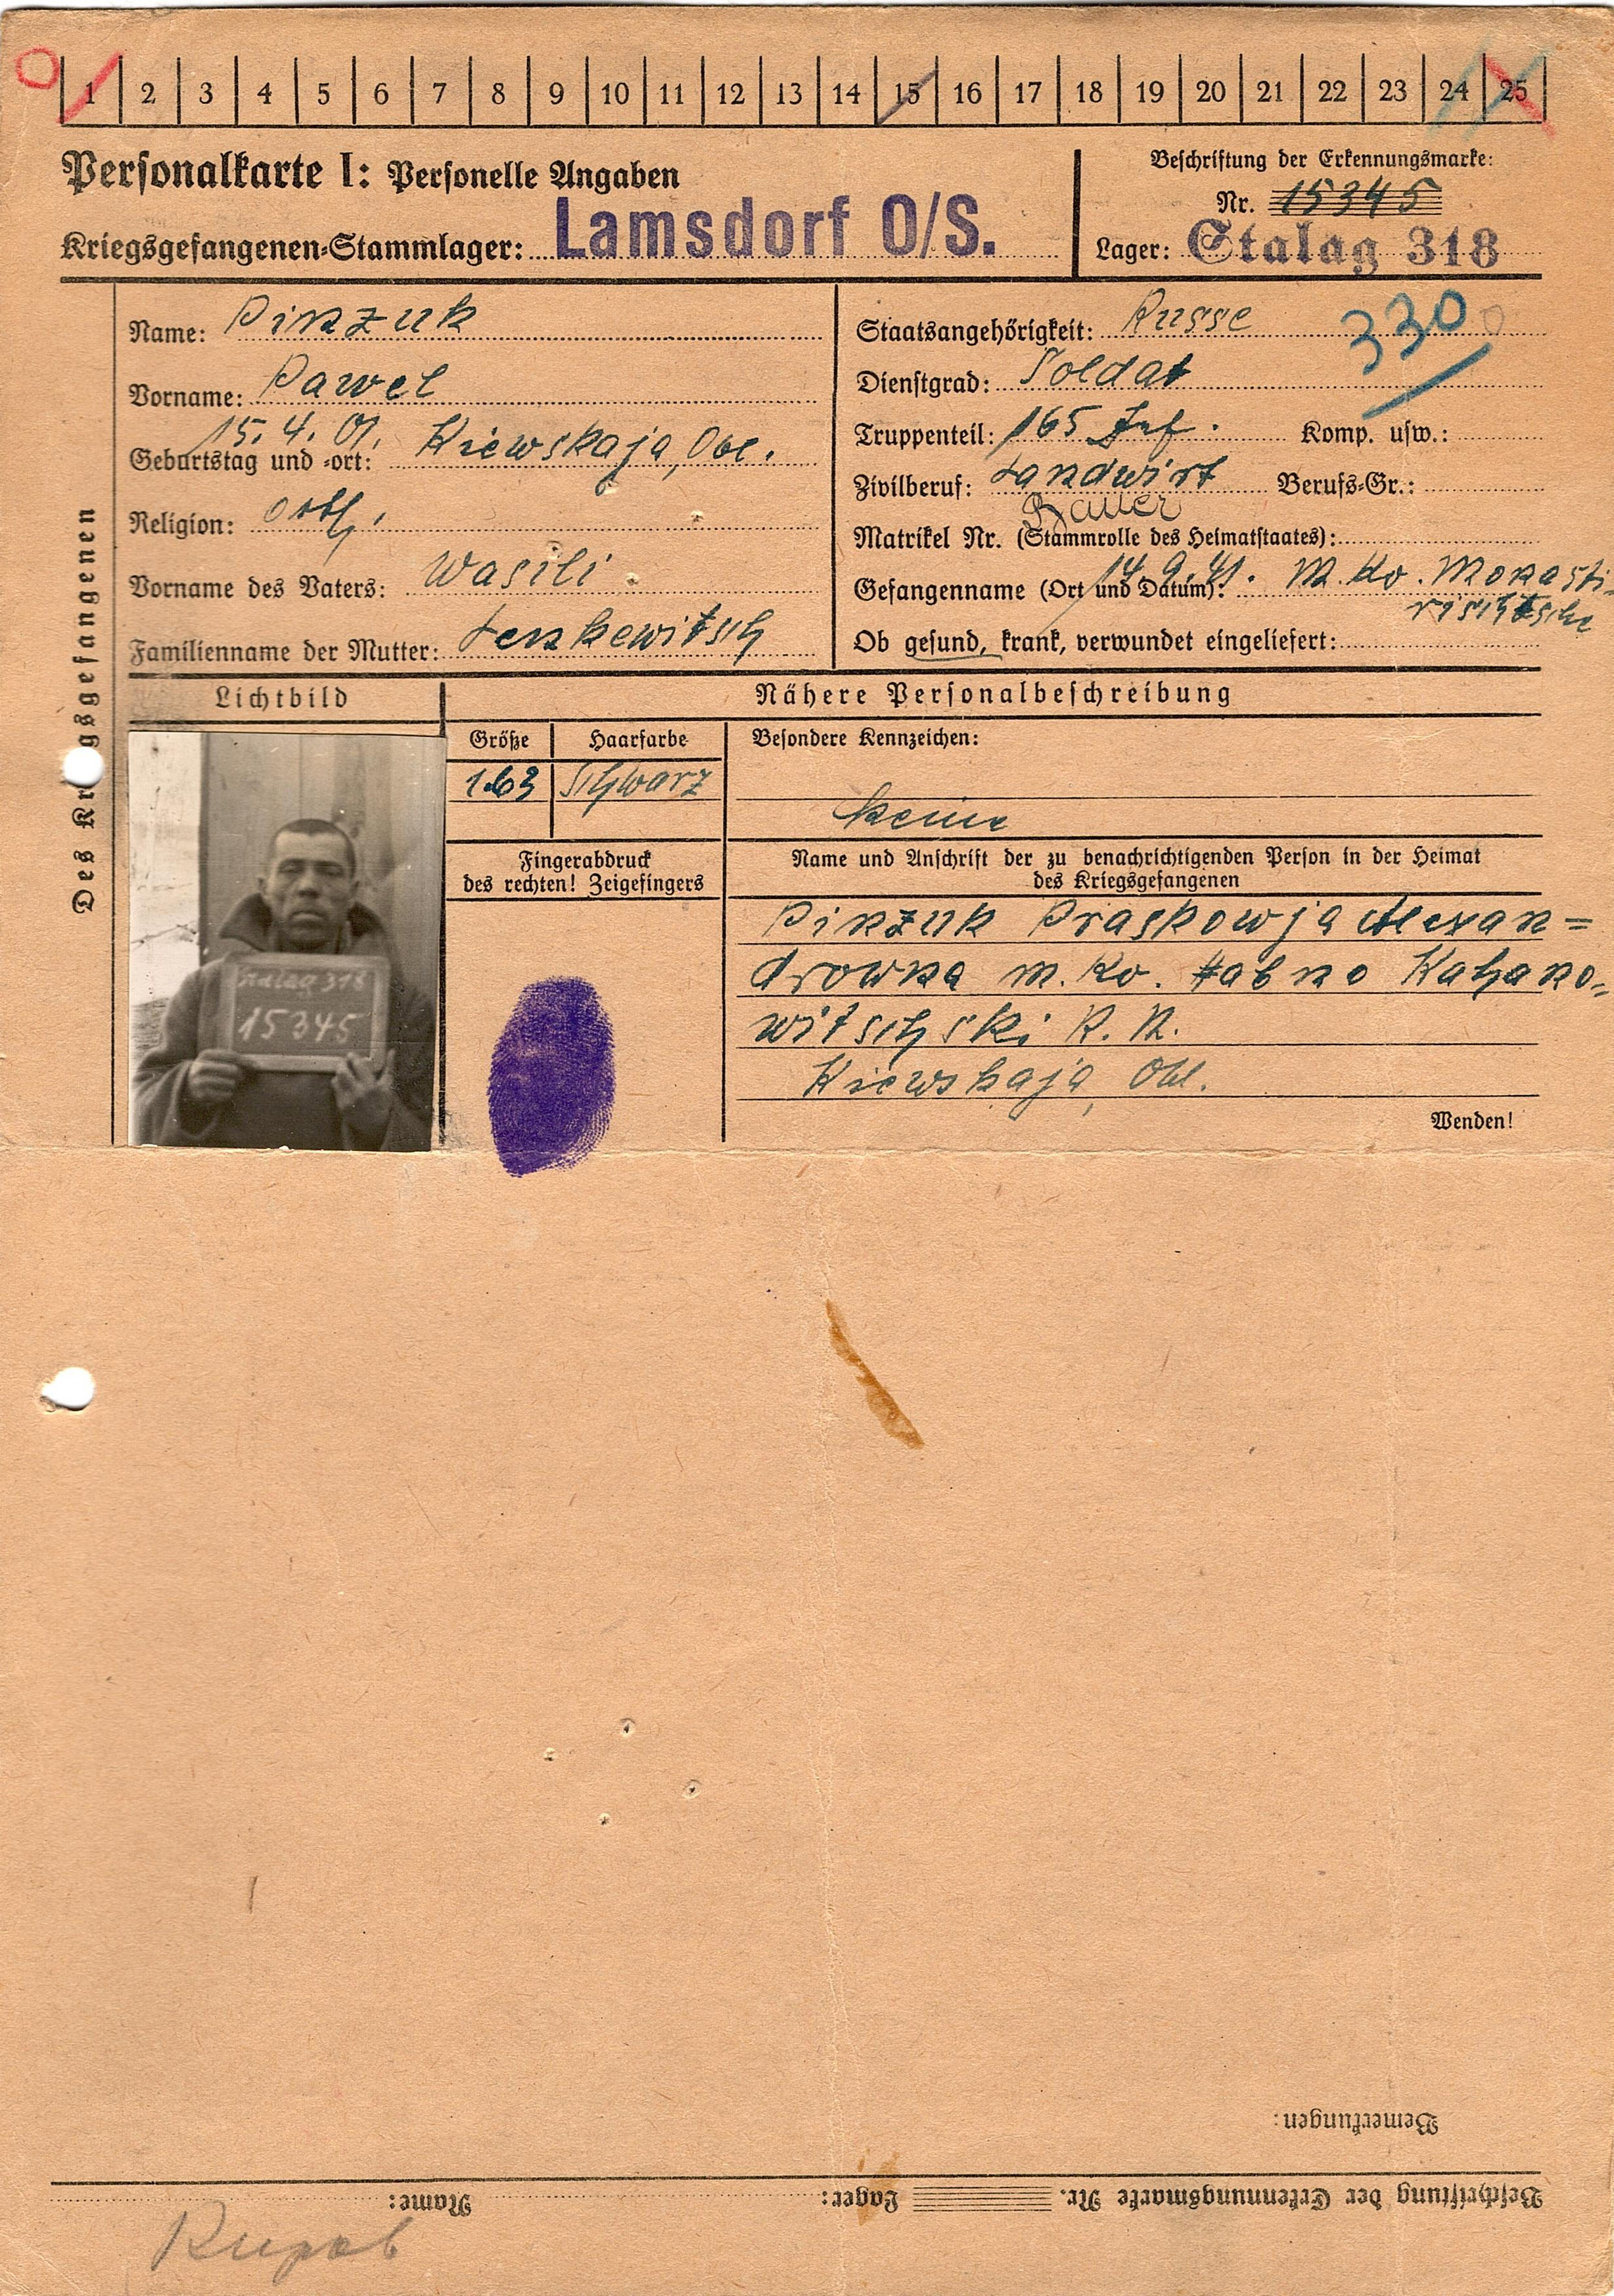 1 2 3 4 5 6 7 8 9 10 11 12 13 14 15 16 17 18 19 20 21 22 23 24 25
Personalkarte I: Personelle Angaben
Kriegsgefangenen-Stammlager: Lamsdorf O/S.
Beschriftung der Erkennungsmarke:
Nr. 15345
Lager: Stalag 318
Des Kriegsgefangenen
Name: Pinzuk
Vorname: Pawel
Geburtstag und -ort: 15.4.01. Kiewskaja, Obl.
Religion: orth.
Vorname des Vaters: Wasili
Familienname der Mutter: Lenkewitsch
Staatsangehörigkeit: Russe
330
Dienstgrad: Soldat
Truppenteil: 165 Inf. Komp. usw.:
Zivilberuf: Landwirt Berufs-Gr.:
Bauer
Matrikel Nr. (Stammrolle des Heimatstaates):
Gefangenname (Ort und Datum): 14.9.41. M. Ko. Monasti-
rischtsche
Ob gesund, krank, verwundet eingeliefert:
Lichtbild
Nähere Personalbeschreibung
Größe Haarfarbe
1.63 schwarz
Besondere Kennzeichen:
keine
Fingerabdruck
des rechten! Zeigefingers
Name und Anschrift der zu benachrichtigenden Person in der Heimat
des Kriegsgefangenen
Pinzuk Praskowja Alexan=
drowna M. Ko. Habno Kahano=
witschski R. N.
Kiewskaja, Obl.
Stalag 318
15345
Wenden!
Bemerkungen:
Beschriftung der Erkennungsmarke Nr. Lager: Name: